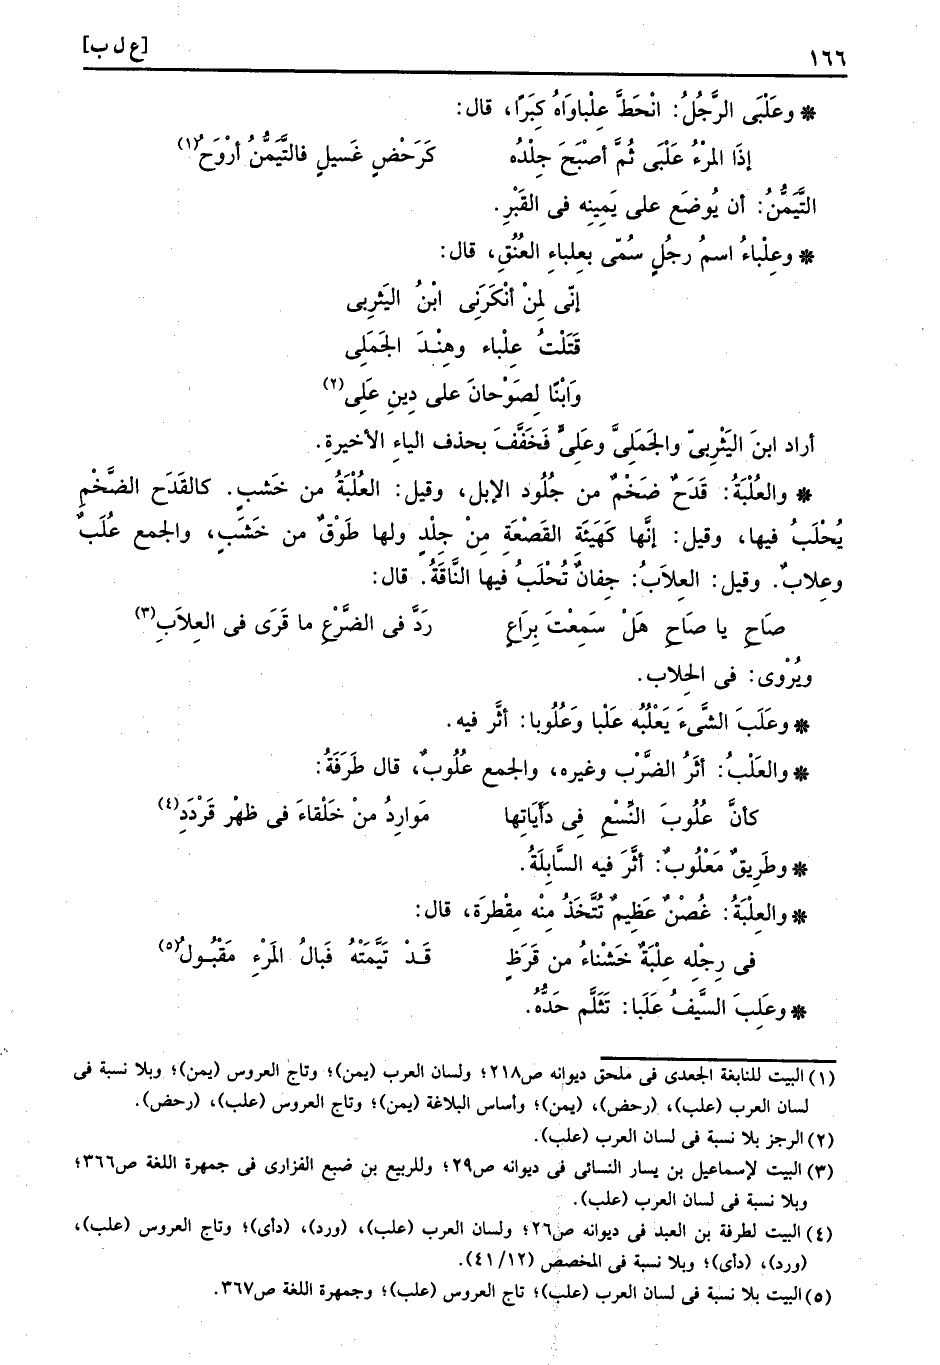 ١٦٦ [ع ل ب]
* وعَلْبَى الرَّجُلُ: انْحَطَّ عِلْباوَاهُ كِبَرًا، قال:
إذَا المَرْءُ عَلْبَى ثُمَّ أصْبَحَ جِلْدُه كَرَحْضِ غَسيلٍ فالتَّيَمُّنُ أرْوَحُ(١)
التَّيَمُّنُ: أن يُوضَع على يَمِينِه فى القَبْرِ.
* وعِلْباءُ اسمُ رجُلٍ سُمّى بعِلباءِ العُنُقِ، قال:
إنّى لِمنْ أنْكَرَنِى ابْنُ اليَثرِبِى
قَتَلْتُ عِلْباء وهِنْدَ الجَمَلِى
وَابْنًا لِصَوْحانَ على دِينِ عَلِى(٢)
أراد ابنَ اليَثْرِبىّ والجَمَلِىَّ وعَلِىٍّ فخَفَّفَ بحذف الياءِ الأخيرةِ.
* والعُلْبَةُ: قَدَحٌ ضَخْمٌ من جُلُود الإبل، وقيل: العُلْبَةُ من خَشبٍ. كالقَدَح الضَّخْمِ
يُحْلَبُ فيها، وقيل: إنَّها كَهَيَئَةِ القَصْعَةِ مِنْ جِلْدٍ ولها طَوْقٌ من خَشَبٍ، والجمع عُلَبٌ
وعِلابٌ. وقيل: العِلاَبُ: جِفانٌ تُحْلَبُ فيها النَّاقَةُ. قال:
صَاحِ يا صَاحِ هَلْ سَمِعْتَ بِرَاعٍ رَدَّ فى الضَّرْعِ ما قَرَى فى العِلاَبِ(٣)
ويُرْوى: فى الحِلاب.
* وعَلَبَ الشَّىءَ يَعْلُبُه عَلْبا وَعُلُوبا: أثَّر فيه.
* والعَلْبُ: أثَرُ الضَّرْب وغيره، والجمع عُلُوبٌ، قال طَرَفَةُ:
كأنَّ عُلُوبَ النِّسْعِ فِى دَأيَاتِها مَوارِدُ منْ خَلْقاءَ فى ظهْرِ قَرْدَدِ(٤)
* وطَرِيقٌ مَعْلُوبٌ: أثَّرَ فيه السَّابِلَةُ.
* والعِلْبَةُ: غُصْنٌ عَظِيمٌ تُتَّخَذُ مِنْه مِقْطرَة، قال:
فى رِجْلِه عِلْبَةٌ خَشْناءُ من قَرَظٍ قَدْ تَيَّمَتْهُ فَبالُ المَرْءِ مَقْبُولُ(٥)
* وعَلِبَ السَّيفُ عَلَبا: تَثَلَّم حَدُّهُ.
(١) البيت للنابغة الجعدى فى ملحق ديوانه ص٢١٨؛ ولسان العرب (يمن)؛ وتاج العروس (يمن)؛ وبلا نسبة فى
لسان العرب (علب)، (رحض)، (يمن)؛ وأساس البلاغة (يمن)؛ وتاج العروس (علب)، (رحض).
(٢) الرجز بلا نسبة فى لسان العرب (علب).
(٣) البيت لإسماعيل بن يسار النسائى فى ديوانه ص٢٩؛ وللربيع بن ضبع الفزارى فى جمهرة اللغة ص٣٦٦؛
وبلا نسبة فى لسان العرب (علب).
(٤) البيت لطرفة بن العبد فى ديوانه ص٢٦؛ ولسان العرب (علب)، (ورد)، (دأى)؛ وتاج العروس (علب)،
(ورد)، (دأى)؛ وبلا نسبة فى المخصص (٤١/١٢).
(٥) البيت بلا نسبة فى لسان العرب (علب)؛ تاج العروس (علب)؛ وجمهرة اللغة ص٣٦٧.